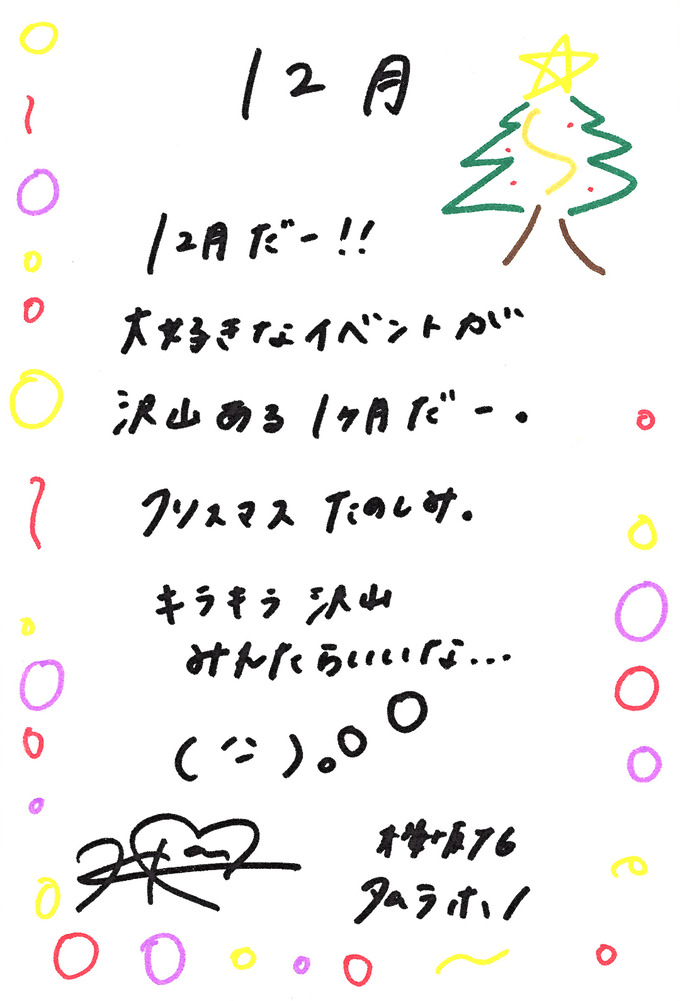 12月
12月だー!!
大好きなイベントが
沢山ある1ヶ月だー。
クリスマスたのしみ。
キラキラ沢山
みれたらいいな...
欅坂46
タムラホノ